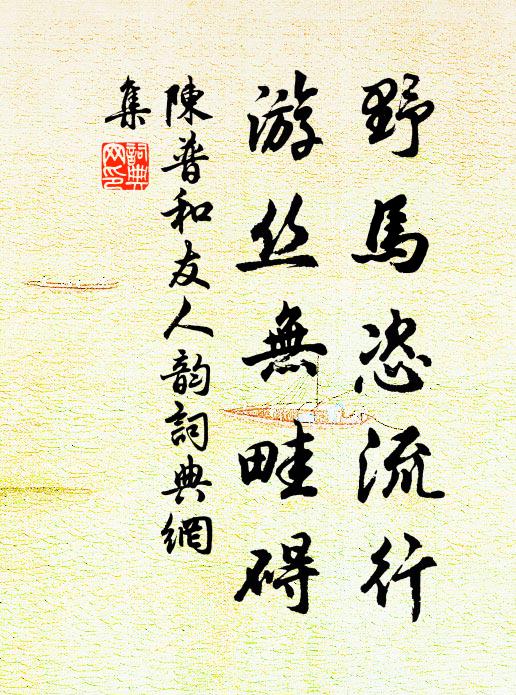 野馬恣流行
游丝無畦碍
陳普和友人韵詞典網
集
詞典网印